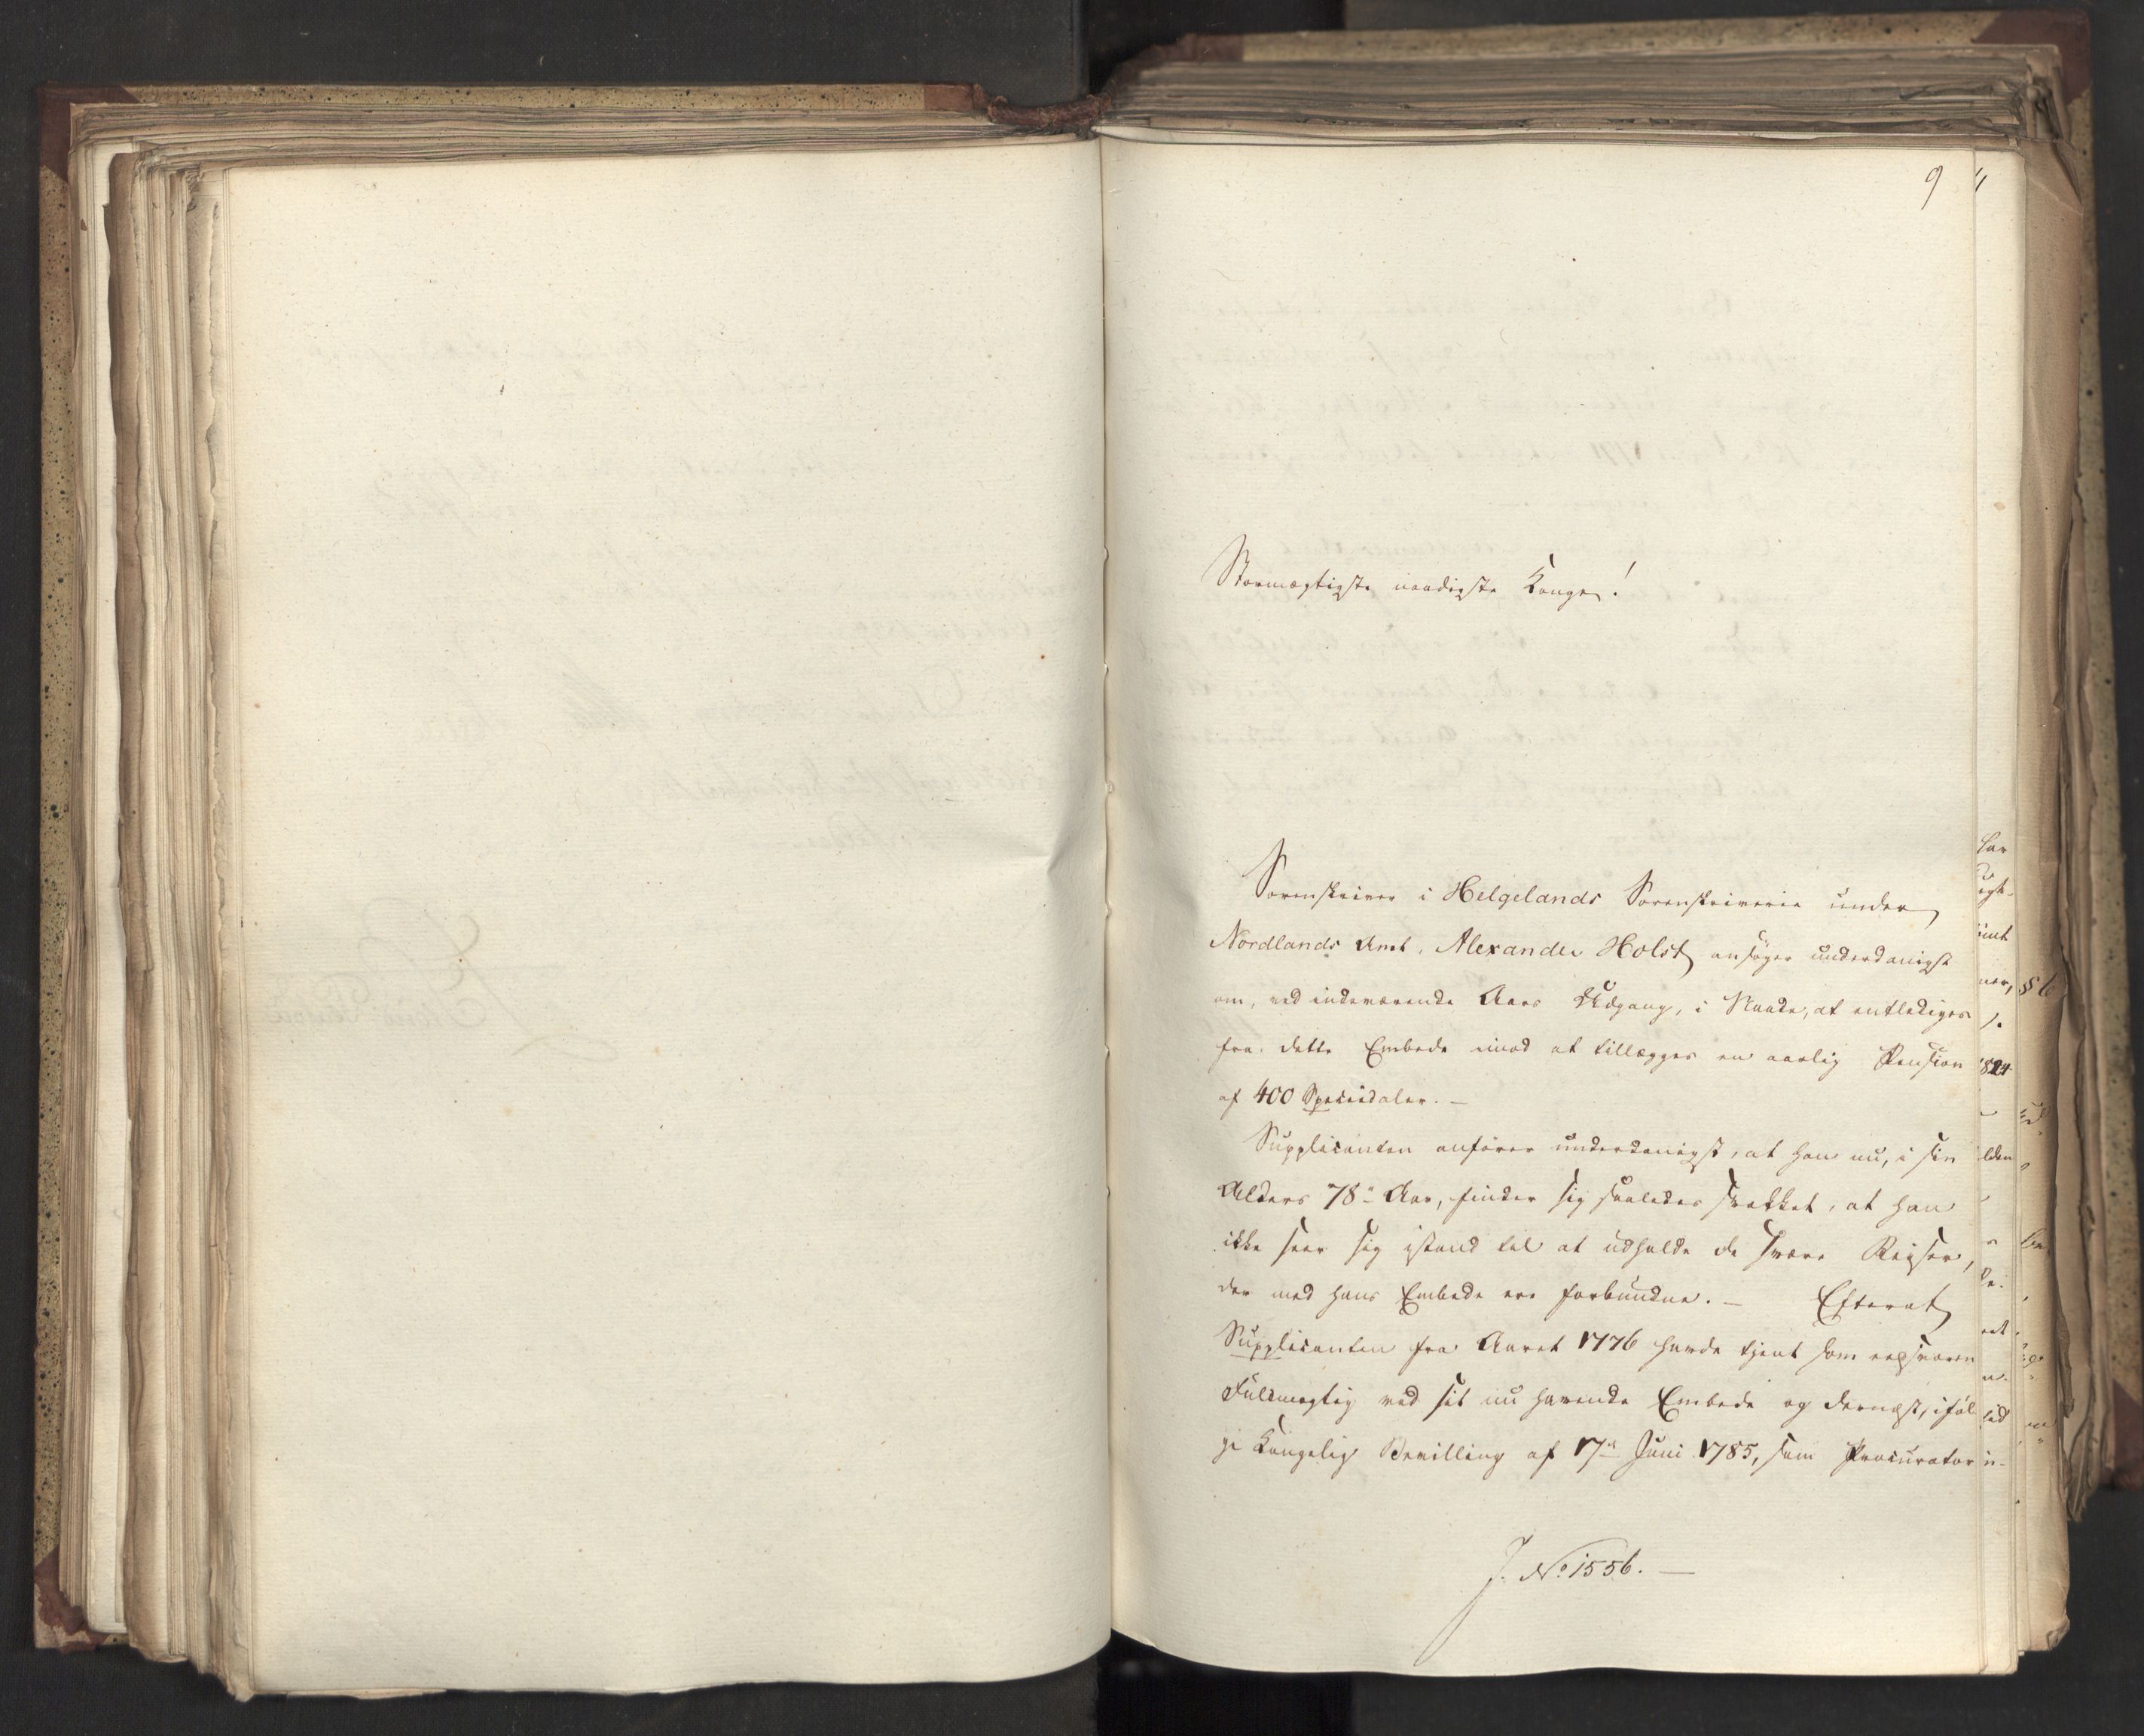 9
Stormægtigste naadigste Konge!
Sorenskriver i Helgelands Sorenskriverie under
Nordlands Amt, Alexander Holst ansøger underdanigst
om, ved indeværende Aars Udgang, i Naade, at entlediges
fra dette Embede imod at tillægges en aarlig Pension
af 400 Speciedaler. –
Supplicanten anfører underdanigst, at han nu, i sin
Alders 78de Aar, finder sig saaledes svækket, at han
ikke seer sig istand til at udholde de svære Reiser,
der med hans Embede ere forbundne. – Efterat
Supplicanten fra Aaret 1776 havde tjent som eedsvoren
Fuldmægtig ved sit nu havende Embede og dernæst, iføl-
ge Kongelig Bevilling af 17de Juni 1785, som Procurator
J. No. 1556. –